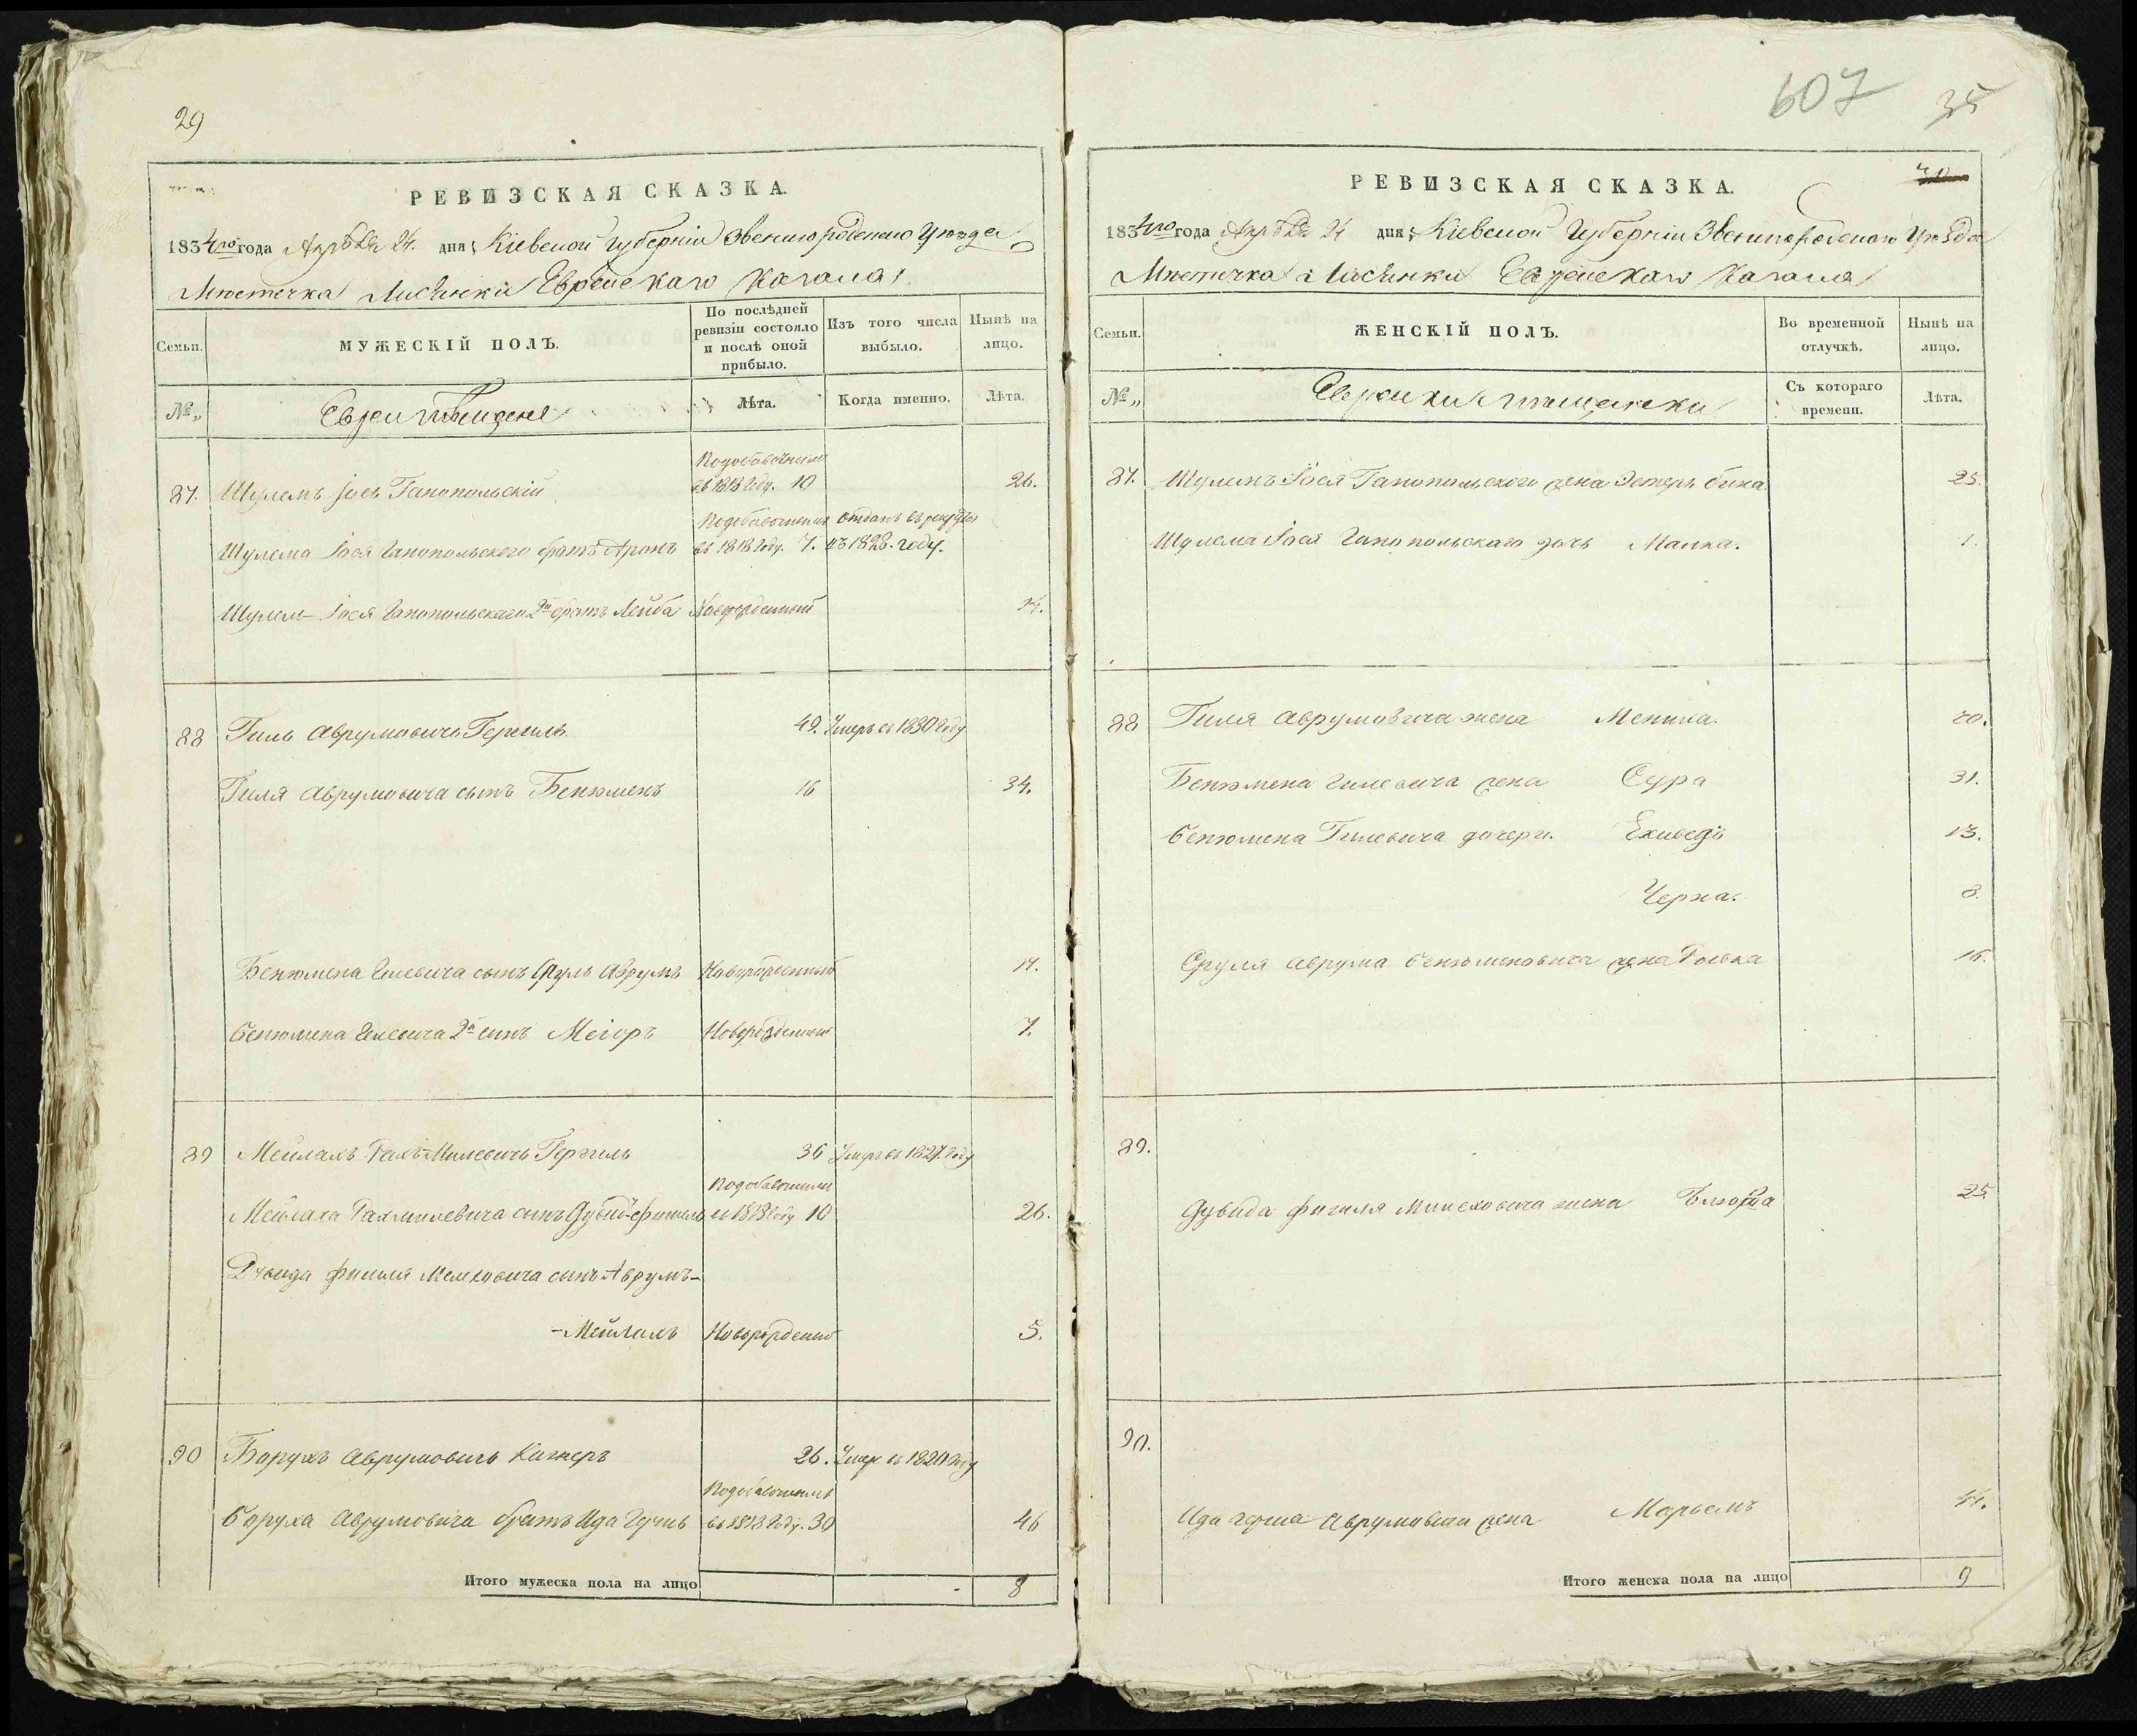 29
РЕВИЗСКАЯ СКАЗКА.
1834го года Апрѣля 24. дня Кіевской Губерніи Звенигородскаго Уѣзда
Мѣстечка Лисянки Еврейскаго Кагала
Семьи.
МУЖЕСКІЙ ПОЛЪ.
По послѣдней ревизіи состояло и послѣ оной прибыло.
Изъ того числа выбыло.
Нынѣ на лицо.
№
Евреи Мѣщане
Лѣта.
Когда именно.
Лѣта.
По добавочнымъ
87. Шулемъ Іось Ганопольскій въ 1818 году. 10 26.
По добавочнымъ отданъ въ рекруты
Шулема Іося Ганопольскаго братъ Аронъ въ 1818 году. 7. въ 1828. году.
Шулем- Іося Ганопольскаго 2й братъ Лейба Новорожденный 14.
88 Гиль Аврумовичъ 49. Умеръ въ 1830 году
Гиля Аврумовича сынъ Бенюменъ 16 34.
Бенюмена Гилевича сынъ Сруль Аврумъ Новорожденный 17.
Бенюмена Гилевича 2й сынъ Меіоръ Новорожденный 7.
89 Мейлахъ Рахмилевичъ 36 Умеръ въ 1827. году
По добавочнымъ
Мейлаха Рахмилевича сынъ Дувид-Фишель въ 1818 году 10 26.
Дувида Фишеля Мелеховича сынъ Аврумъ-
-Мейлахъ Новорожденный 5.
90 Борухъ Аврумовичъ 26. Умеръ въ 1820 году
По добавочнымъ
Боруха Аврумовича братъ Ида Гершъ въ 1818 году. 30 46
Итого мужеска пола на лицо 8
607
35
РЕВИЗСКАЯ СКАЗКА.
1834го года Апрѣля 24 дня Кіевской Губерніи Звенигородскаго Уѣзда
Мѣстечка Лисянки Еврейскаго Кагала
Семьи.
ЖЕНСКІЙ ПОЛЪ.
Во временной отлучкѣ.
Нынѣ на лицо.
№
Еврейки Мѣщанки
Съ котораго времени.
Лѣта.
87. Шулемъ Іося Ганопольского жена Эстеръ бина. 25.
Шулема Іося Ганопольскаго дочь Малка. 1.
88 Гиля Аврумовича жена 70.
Бенюмена Гилевича жена Сура 31.
Бенюмена Гилевича дочери. 13.
Черна. 8.
Сруля Аврума Бенюменовича жена 16.
89.
Дувида Фишеля Мелеховича жена 25
90.
Ида Герша Аврумовича жена Марьемъ 44.
Итого женска пола на лицо 9